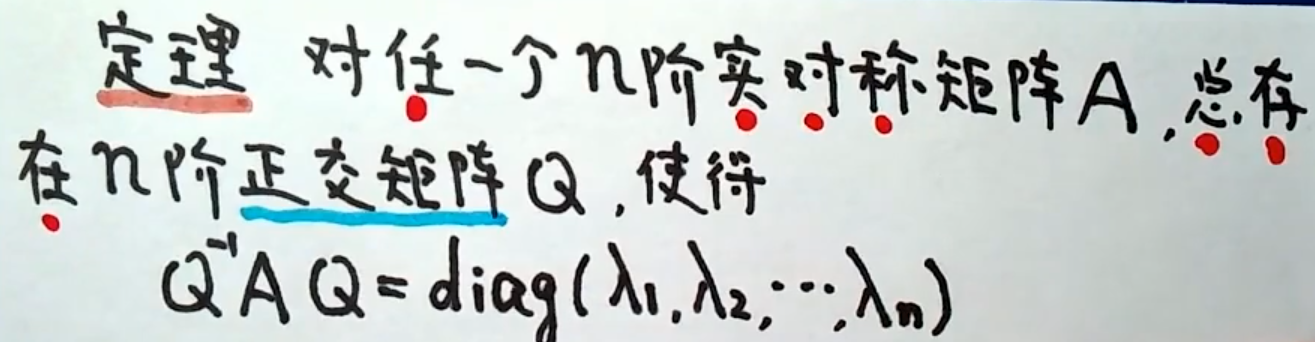 定理 对任一个n阶实对称矩阵A,总存
在n阶正交矩阵Q,使得
Q⁻¹AQ=diag(λ₁,λ₂,⋯,λₙ)